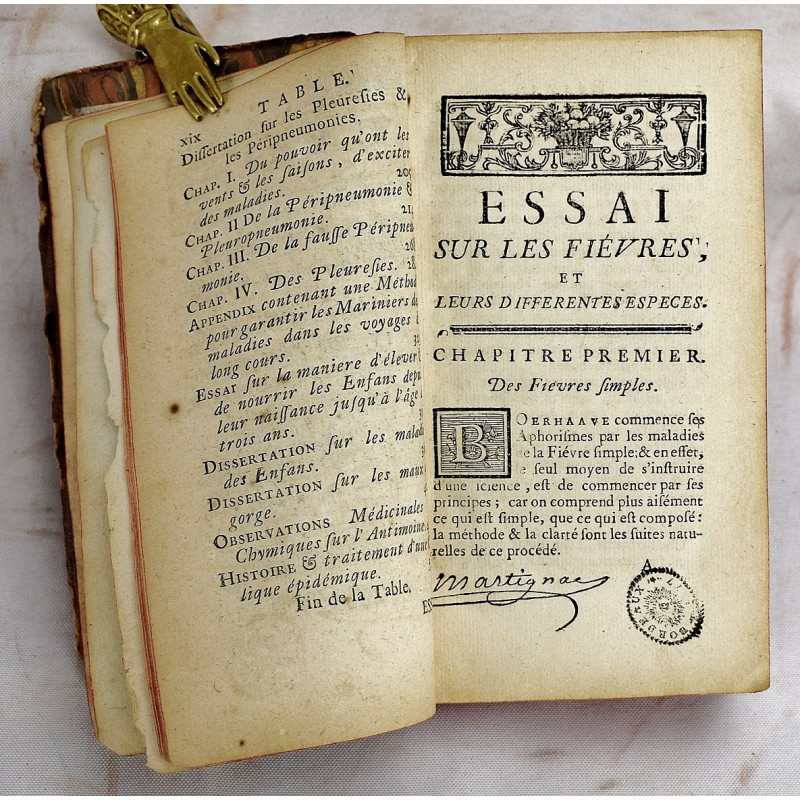 xix TABLE.
Diſſertation ſur les Pleureſies &
les Péripneumonies.
CHAP. I. Du pouvoir qu'ont les
vents & les ſaiſons, d'exciter
des maladies.
CHAP. II De la Péripneumonie &
Pleuropneumonie.
CHAP. III. De la fauſſe Péripneu
monie.
CHAP. IV. Des Pleureſies.
APPENDIX contenant une Méthod
pour garantir les Mariniers de
maladies dans les voyages
long cours.
ESSAI ſur la maniere d'élever
de nourrir les Enfans depu
leur naiſſance juſqu'à l'âge
trois ans.
DISSERTATION ſur les malad
des Enfans.
DISSERTATION ſur les maux
gorge.
OBSERVATIONS Médicinales
Chymiques ſur l'Antimoine.
HISTOIRE & traitement d'une
lique épidémique.
Fin de la Table.
ES
ESSAI
SUR LES FIÉVRES,
ET
LEURS DIFFERENTES ESPECES.
CHAPITRE PREMIER.
Des Fievres ſimples.
BOERHAAVE commence ſes
Aphoriſmes par les maladies
de la Fiévre ſimple; & en effet,
le ſeul moyen de s'inſtruire
d'une ſcience, eſt de commencer par ſes
principes; car on comprend plus aiſément
ce qui eſt ſimple, que ce qui eſt compoſé:
la méthode & la clarté ſont les ſuites natu-
relles de ce procédé.
A
Martignac
BORDEAUX